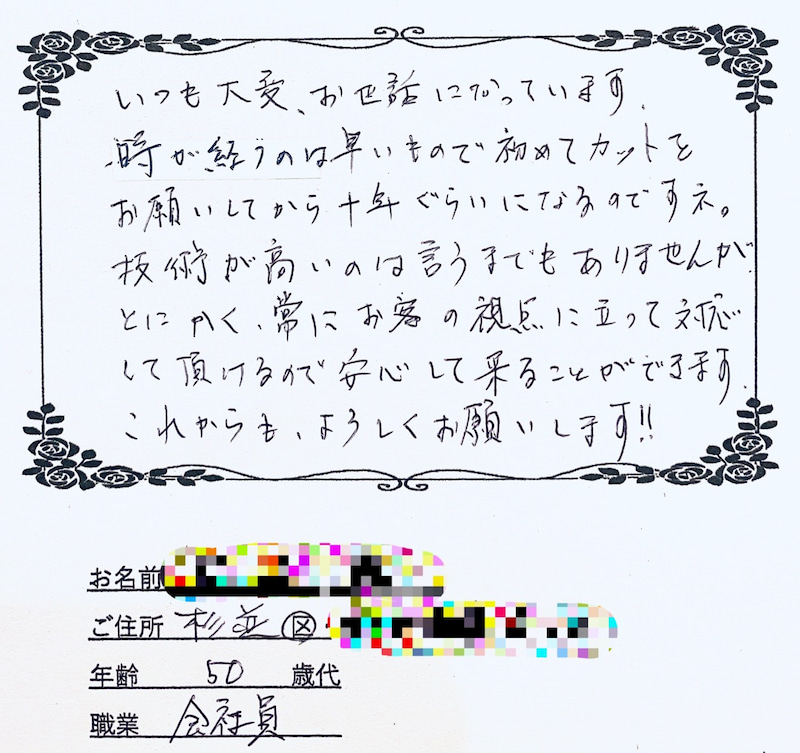 いつも大変、お世話になっています。
時が経うのは早いもので初めてカットを
お願いしてから十年ぐらいになるのですネ。
技術が高いのは言うまでもありませんが
とにかく、常にお客の視点に立って対応
して頂けるので安心して来ることができます。
これからも、よろしくお願いします!!
お名前
ご住所 杉並区
年齢 50 歳代
職業 会社員